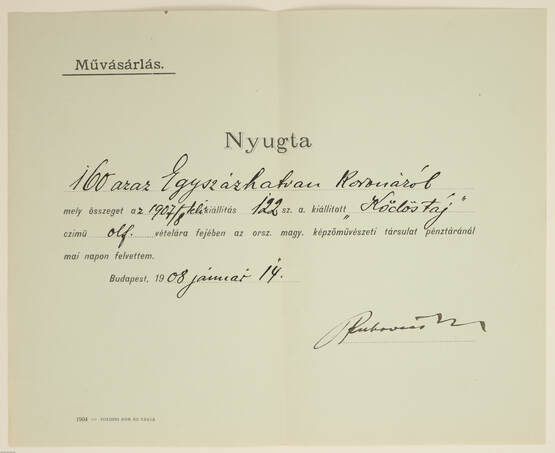 Művásárlás.
Nyugta
160 azaz Egyszázhatvan koronáról
mely összeget az 1907/8 téli kiállítás 122 sz. a. kiállított „Ködös táj"
czimű olf. vételára fejében az orsz. magy. képzőművészeti társulat pénztáránál
mai napon felvettem.
Budapest, 1908 január 14.
1904 —